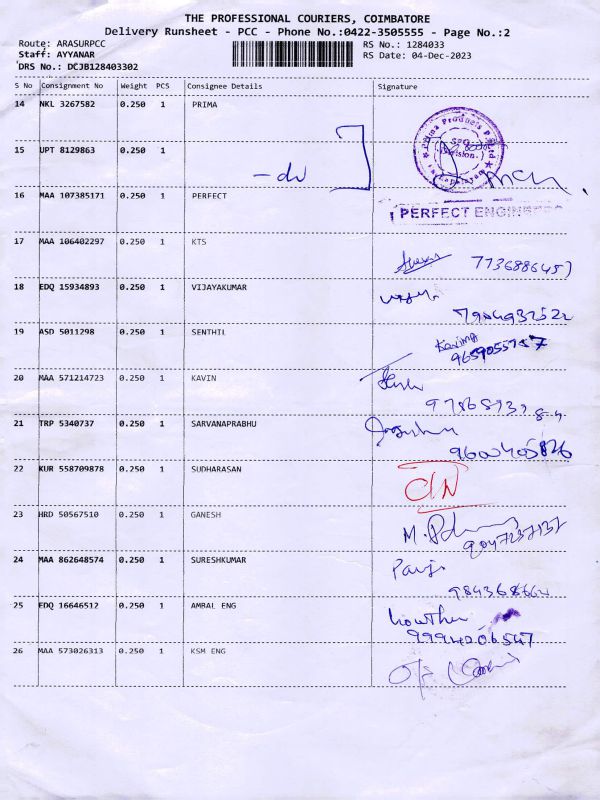 THE PROFESSIONAL COURIERS, COIMBATORE
Delivery Runsheet - PCC - Phone No.:0422-3505555 - Page No.:2
Route: ARASURPCC RS No.: 1284033
Staff: AYYANAR RS Date: 04-Dec-2023
DRS No.: DCJB128403302
S No Consignment No Weight PCS Consignee Details Signature
14 NKL 3267582 0.250 1 PRIMA
Prima Products P. Ltd
15 UPT 8129863 0.250 1
16 MAA 107385171 0.250 1 PERFECT
PERFECT ENGINE
17 MAA 106402297 0.250 1 KTS
18 EDQ 15934893 0.250 1 VIJAYAKUMAR
19 ASD 5011298 0.250 1 SENTHIL
20 MAA 571214723 0.250 1 KAVIN
21 TRP 5340737 0.250 1 SARVANAPRABHU
22 KUR 558709878 0.250 1 SUDHARASAN
23 HRD 50567510 0.250 1 GANESH
24 MAA 862648574 0.250 1 SURESHKUMAR
25 EDQ 16646512 0.250 1 AMBAL ENG
9994206547
26 MAA 573026313 0.250 1 KSM ENG